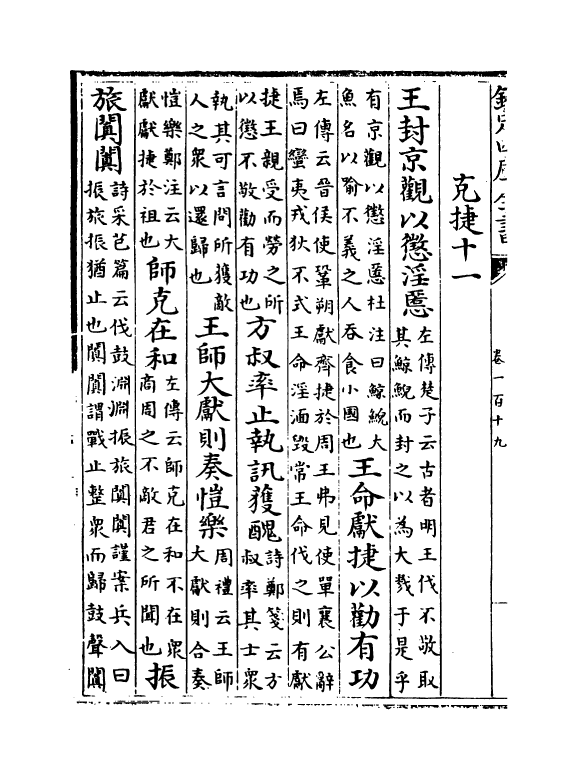 欽定四庫全書
卷一百十九
克捷十一
王封京觀以懲淫慝
左傳楚子云古者明王伐不敬取
其鯨鯢而封之以為大戮于是乎
有京觀以懲淫慝杜注曰鯨鯢大
魚名以喻不義之人吞食小國也
王命獻捷以勸有功
左傳云晉侯使鞏朔獻齊捷於周王弗見使單襄公辭
焉曰蠻夷戎狄不式王命淫湎毀常王命伐之則有獻
捷王親受而勞之所
以懲不敬勸有功也
方叔率止執訊獲醜
詩鄭箋云方
叔率其士衆
執其可言問所獲敵
人之衆以還歸也
王師大獻則奏愷樂
周禮云王師
大獻則合奏
愷樂鄭注云大
獻獻捷於祖也
師克在和
左傳云師克在和不在衆
商周之不敵君之所聞也
振
旅闐闐
詩采芑篇云伐鼓淵淵振旅闐闐謹案兵入曰
振旅振猶止也闐闐謂戰止整衆而歸鼓聲闐